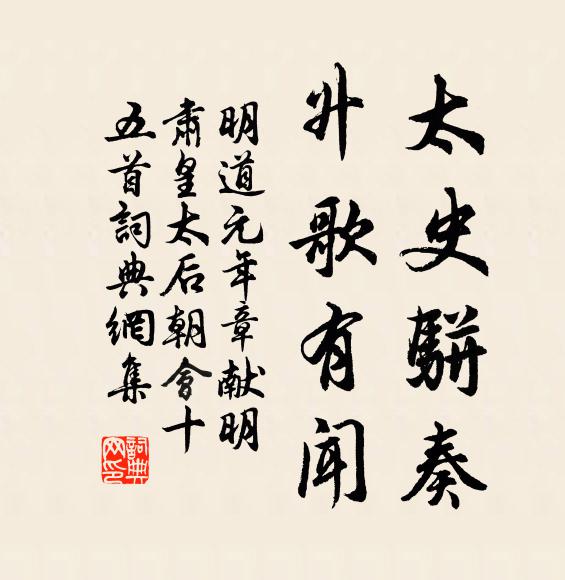 太史駢奏
升歌有聞
明道元年章献明
肅皇太后朝會十
五首詞典網集
詞典
网印